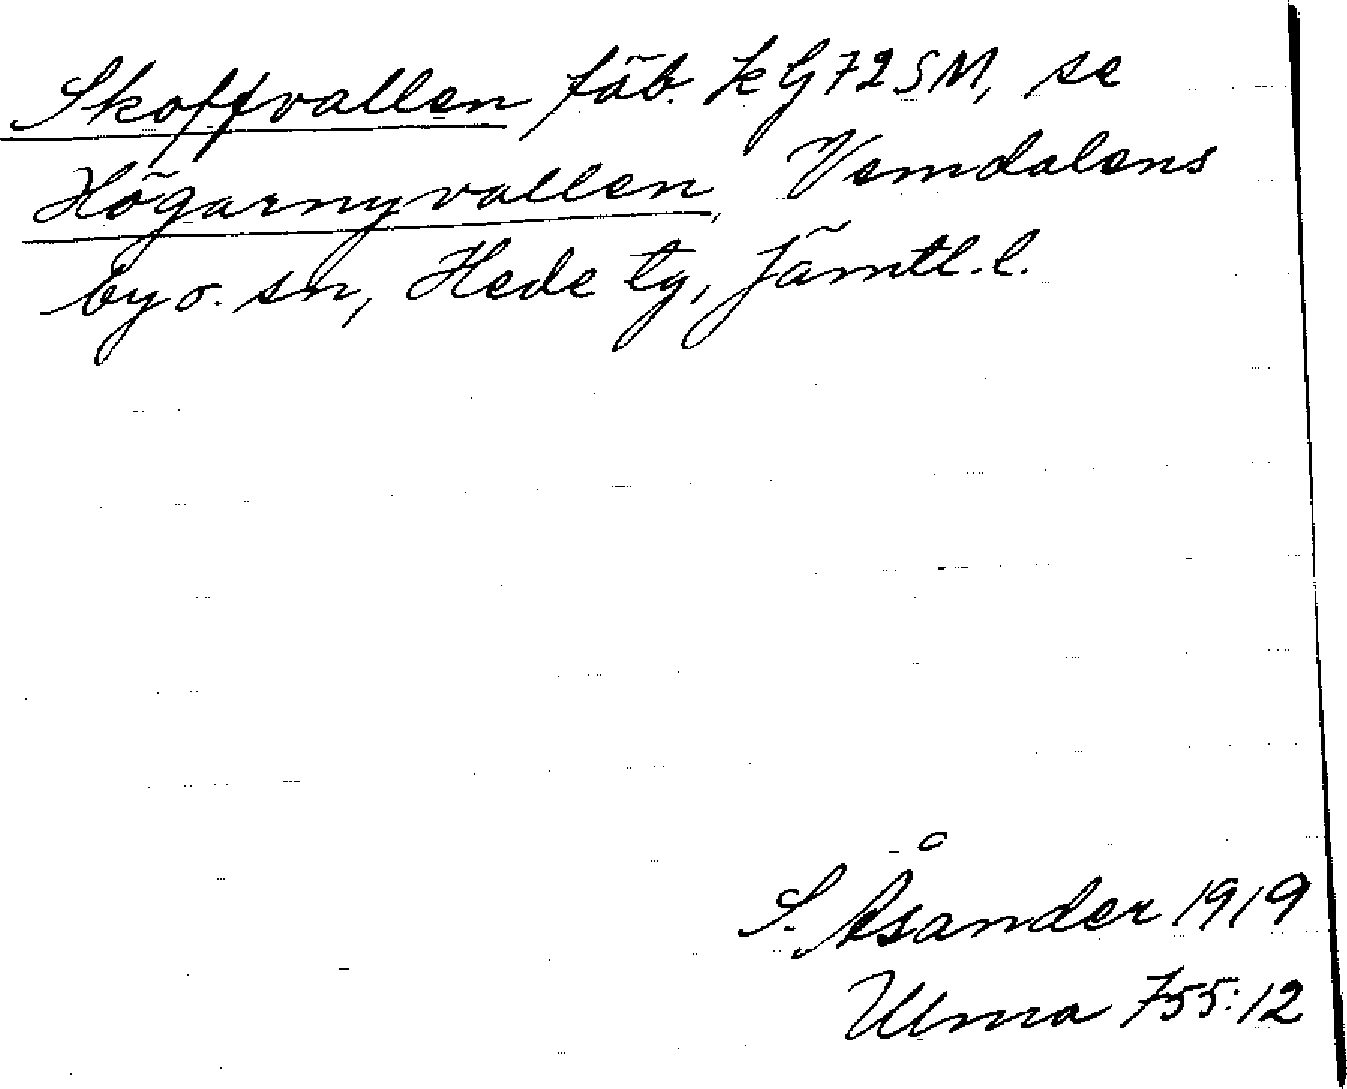 Skoffvallen fäb. k G 72 SM, se
Högarnyvallen, Vemdalens
by o. sn, Hede tg, Jämtl. l.
S. Åsander 1919
Ulma 755:12